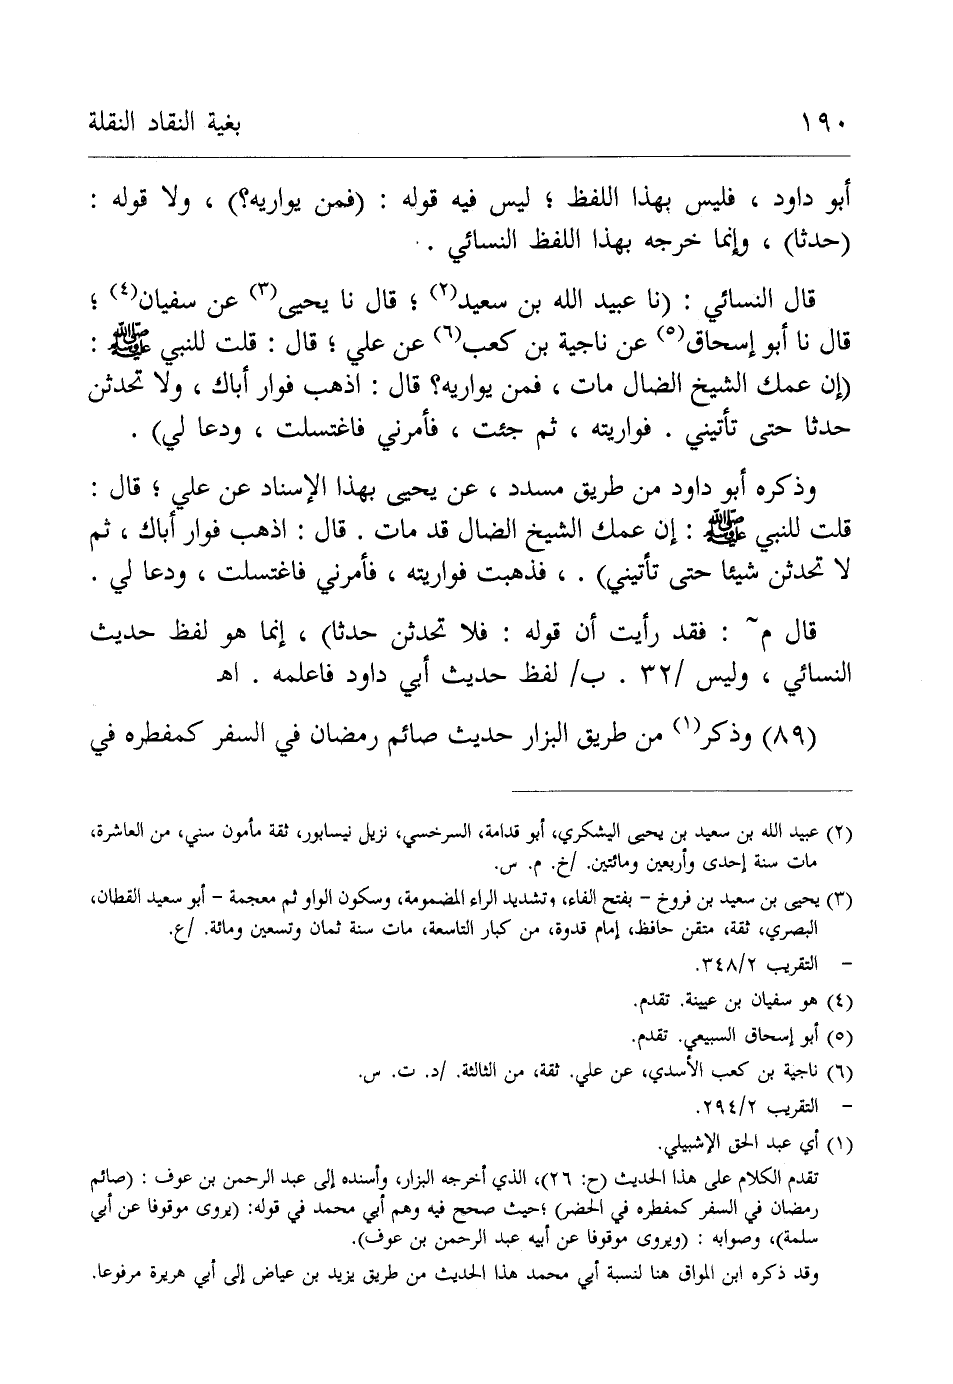 ١٩٠ بغية النقاد النقلة
أبو داود ، فليس بهذا اللفظ ؛ ليس فيه قوله : (فمن يواريه؟) ، ولا قوله :
(حدثا) ، وإنما خرجه بهذا اللفظ النسائي .
قال النسائي : (نا عبيد الله بن سعيد(٢) ؛ قال نا يحيى(٣) عن سفيان(٤) ؛
قال نا أبو إسحاق(٥) عن ناجية بن كعب(٦) عن علي ؛ قال : قلت للنبي ﷺ :
(إن عمك الشيخ الضال مات ، فمن يواريه؟ قال : اذهب فوار أباك ، ولا تحدثن
حدثا حتى تأتيني . فواريته ، ثم جئت ، فأمرني فاغتسلت ، ودعا لي) .
وذكره أبو داود من طريق مسدد ، عن يحيى بهذا الإسناد عن علي ؛ قال :
قلت للنبي ﷺ : إن عمك الشيخ الضال قد مات . قال : اذهب فوار أباك ، ثم
لا تحدثن شيئا حتى تأتيني) . ، فذهبت فواريته ، فأمرني فاغتسلت ، ودعا لي .
قال م~ : فقد رأيت أن قوله : فلا تحدثن حدثا) ، إنما هو لفظ حديث
النسائي ، وليس /٣٢ . ب/ لفظ حديث أبي داود فاعلمه . اهـ
(٨٩) وذكر(١) من طريق البزار حديث صائم رمضان في السفر كمفطره في
(٢) عبيد الله بن سعيد بن يحيى اليشكري، أبو قدامة، السرخسي، نزيل نيسابور، ثقة مأمون سني، من العاشرة،
مات سنة إحدى وأربعين ومائتين. /خ. م. س.
(٣) يحيى بن سعيد بن فروخ - بفتح الفاء، وتشديد الراء المضمومة، وسكون الواو ثم معجمة - أبو سعيد القطان،
البصري، ثقة، متقن حافظ، إمام قدوة، من كبار التاسعة، مات سنة ثمان وتسعين ومائة. /ع.
- التقريب ٣٤٨/٢.
(٤) هو سفيان بن عيينة. تقدم.
(٥) أبو إسحاق السبيعي. تقدم.
(٦) ناجية بن كعب الأسدي، عن علي. ثقة، من الثالثة. /د. ت. س.
- التقريب ٢٩٤/٢.
(١) أي عبد الحق الإشبيلي.
تقدم الكلام على هذا الحديث (ح: ٢٦)، الذي أخرجه البزار، وأسنده إلى عبد الرحمن بن عوف : (صائم
رمضان في السفر كمفطره في الحضر) ؛حيث صحح فيه وهم أبي محمد في قوله: (يروى موقوفا عن أبي
سلمة)، وصوابه : (ويروى موقوفا عن أبيه عبد الرحمن بن عوف).
وقد ذكره ابن المواق هنا لنسبة أبي محمد هذا الحديث من طريق يزيد بن عياض إلى أبي هريرة مرفوعا.